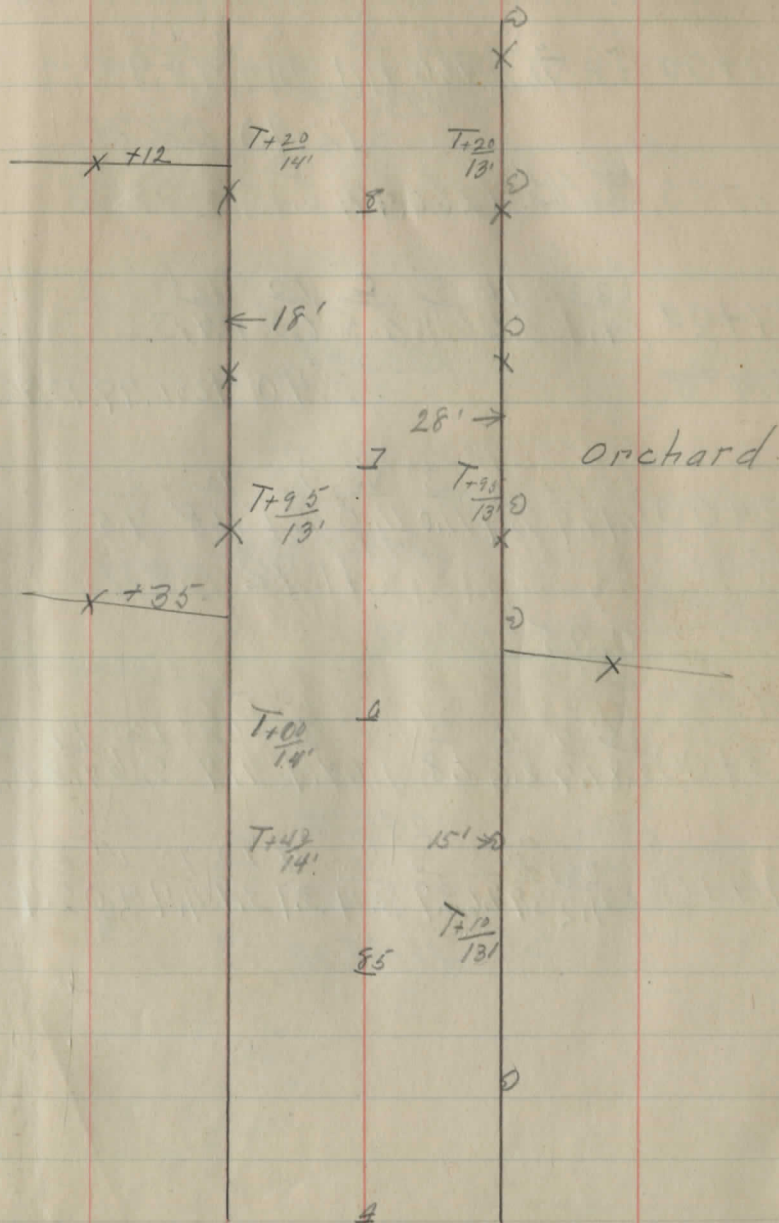 T+20/14' T+20/13'
+12
8
18'
28'
Orchard
7
T+95/13' T+95/13'
+35
6
T+00/14'
T+49/14' 15'
T+10/13'
85
4